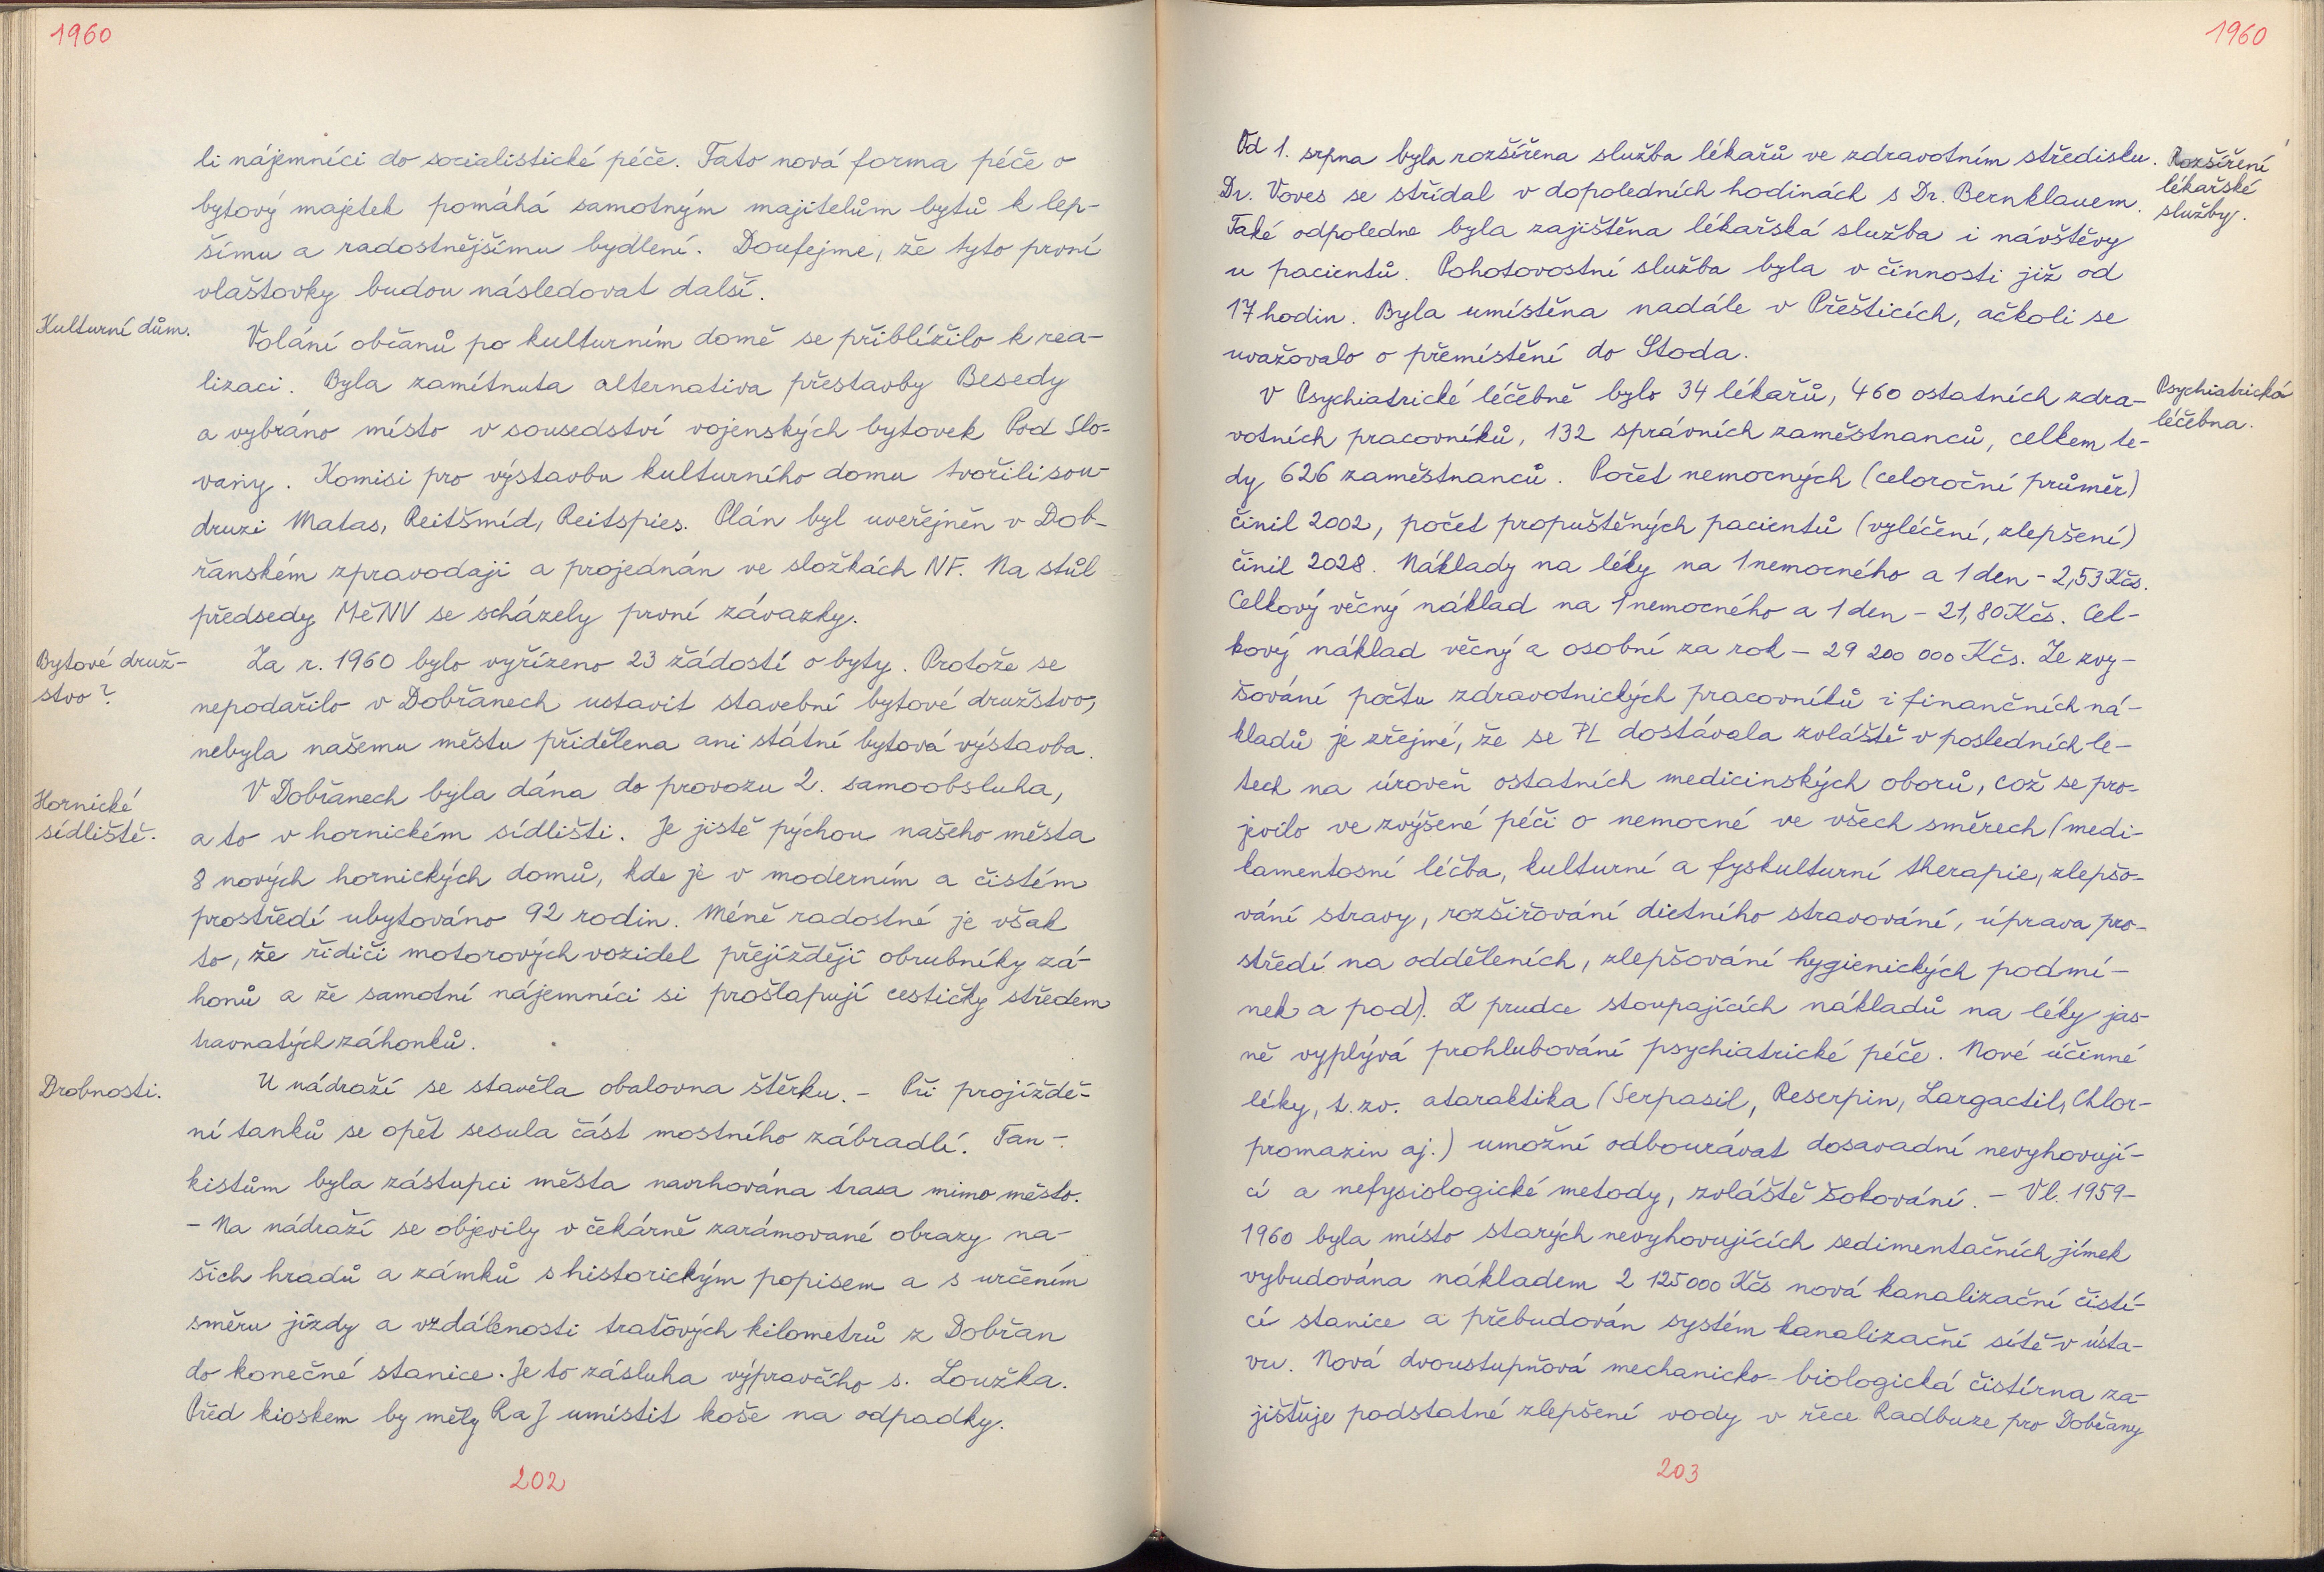 1960
li nájemníci do socialistické péče. Tato nová forma péče o
bytový majetek pomáhá samotným majitelům bytů k lep-
šímu a radostnějšímu bydlení. Doufejme, že tyto první
vlaštovky budou následovat další.
Kulturní dům.
Volání občanů po kulturním domě se přiblížilo k rea-
lizaci. Byla zamítnuta alternativa přestavby Besedy
a vybráno místo v sousedství vojenských bytovek Pod Slo-
vany. Komisi pro výstavbu kulturního domu tvořili sou-
druzi Matas, Reitšmíd, Reitspies. Plán byl uveřejněn v Dob-
řanském zpravodaji a projednán ve složkách NF. Na stůl
předsedy MěNV se scházely první závazky.
Bytové druž-
stvo?
Za r. 1960 bylo vyřízeno 23 žádostí o byty. Protože se
nepodařilo v Dobřanech ustavit stavební bytové družstvo,
nebyla našemu městu přidělena ani státní bytová výstavba.
Hornické
sídliště.
V Dobřanech byla dána do provozu 2. samoobsluha,
a to v hornickém sídlišti. Je jistě pýchou našeho města
8 nových hornických domů, kde je v moderním a čistém
prostředí ubytováno 92 rodin. Méně radostné je však
to, že řidiči motorových vozidel přejíždějí obrubníky zá-
honů a že samotní nájemníci si prošlapují cestičky středem
travnatých záhonků.
Drobnosti.
U nádraží se stavěla obalovna štěrku. - Při projíždě-
ní tanků se opět sesula část mostního zábradlí. Tan-
kistům byla zástupci města navrhována trasa mimo město.
- Na nádraží se objevily v čekárně zarámované obrazy na-
šich hradů a zámků s historickým popisem a s určením
směru jízdy a vzdálenosti traťových kilometrů z Dobřan
do konečné stanice. Je to zásluha výpravčího s. Loužka.
Před kioskem by měly RaJ umístit koše na odpadky.
202
1960
Od 1. srpna byla rozšířena služba lékařů ve zdravotním středisku.
Dr. Voves se střídal v dopoledních hodinách s Dr. Bernklauem.
Také odpoledne byla zajištěna lékařská služba i návštěvy
u pacientů. Pohotovostní služba byla v činnosti již od
17 hodin. Byla umístěna nadále v Přešticích, ačkoli se
uvažovalo o přemístění do Stoda.
Rozšíření
lékařské
služby.
V Psychiatrické léčebně bylo 34 lékařů, 460 ostatních zdra-
votních pracovníků, 132 správních zaměstnanců, celkem te-
dy 626 zaměstnanců. Počet nemocných (celoroční průměr)
činil 2002, počet propuštěných pacientů (vyléčení, zlepšení)
činil 2028. Náklady na léky na 1 nemocného a 1 den - 2,53 Kčs.
Celkový věcný náklad na 1 nemocného a 1 den - 21,80 Kčs. Cel-
kový náklad věcný a osobní za rok - 29 200 000 Kčs. Ze zvy-
šování počtu zdravotnických pracovníků i finančních ná-
kladů je zřejmé, že se PL dostávala zvláště v posledních le-
tech na úroveň ostatních medicinských oborů, což se pro-
jevilo ve zvýšené péči o nemocné ve všech směrech (medi-
kamentosní léčba, kulturní a fyskulturní therapie, zlepšo-
vání stravy, rozšiřování dietního stravování, úprava pro-
středí na odděleních, zlepšování hygienických podmí-
nek a pod). Z prudce stoupajících nákladů na léky jas-
ně vyplývá prohlubování psychiatrické péče. Nové účinné
léky, t. zv. ataraktika (Serpasil, Reserpin, Largactil, Chlor-
promazin aj.) umožní odbourávat dosavadní nevyhovují-
cí a nefysiologické metody, zvláště šokování. - V l. 1959-
1960 byla místo starých nevyhovujících sedimentačních jímek
vybudována nákladem 2 125 000 Kčs nová kanalizační čistí-
cí stanice a přebudován systém kanalizační sítě v ústa-
vu. Nová dvoustupňová mechanicko-biologická čistírna za-
jišťuje podstatné zlepšení vody v řece Radbuze pro Dobřany
Psychiatrická
léčebna.
203